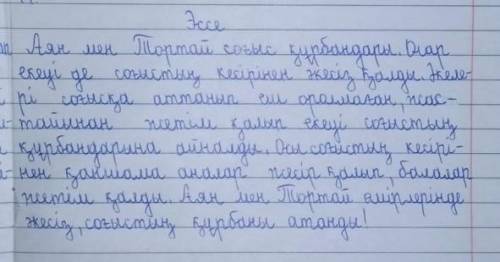 Эссе
Аян мен Тортай соғыс құрбандары. Олар
екеуі де соғыстың кесірінен әкесіз қалды. Әкеле-
рі соғысқа аттанып еш оралмаған, жас-
тайынан жетім қалып екеуі соғыстың
құрбандарына айналды. Осы соғыстың кесірі-
нен қаншама аналар жесір қалып, балалар
жетім қалды. Аян мен Тортай өмірлерінде
әкесіз, соғыстың құрбаны атанды!